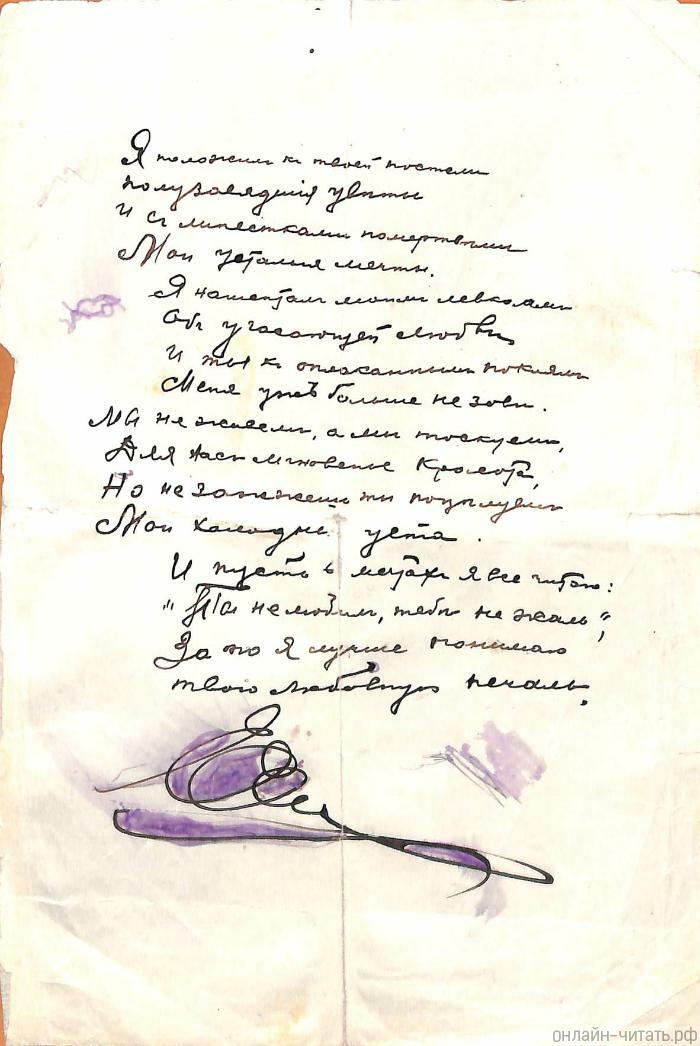 Я положил к твоей постели
полузавядшія цвѣты
И съ лепестками помертвѣли
Мои усталыя мечты.
Я нашептал моим левкоям
Объ угасающей любви
И ты къ оплаканным покоям
Меня ужъ больше не зови.
Мы не живем, а мы тоскуем,
Для насъ мгновенье Красота,
Но не зажжешь ты поцѣлуем
Мои холодные уста.
И пусть в мечтахъ я все читаю:
"Ты не любил, тебѣ не жаль",
За то я лучше понимаю
твою Любовную печаль.
онлайн-читать.рф